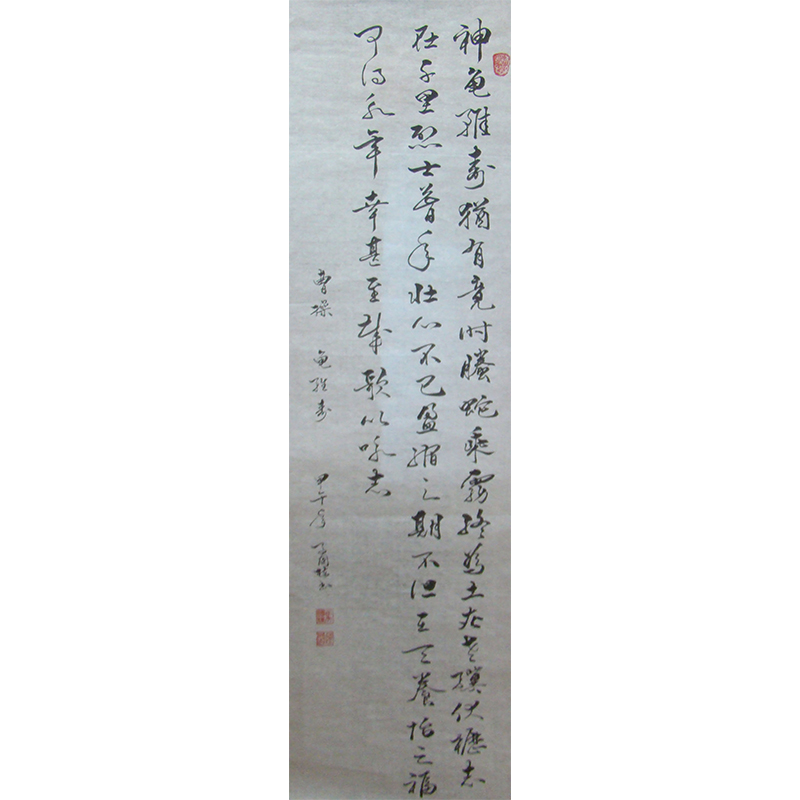 神龟雖寿猶有竟时螣蛇乘霧終為土灰老驥伏櫪志
在千里烈士暮年壮心不已盈縮之期不但在天養怡之福
可得永年幸甚至哉歌以咏志
曹操 龟雖寿 甲午年 书